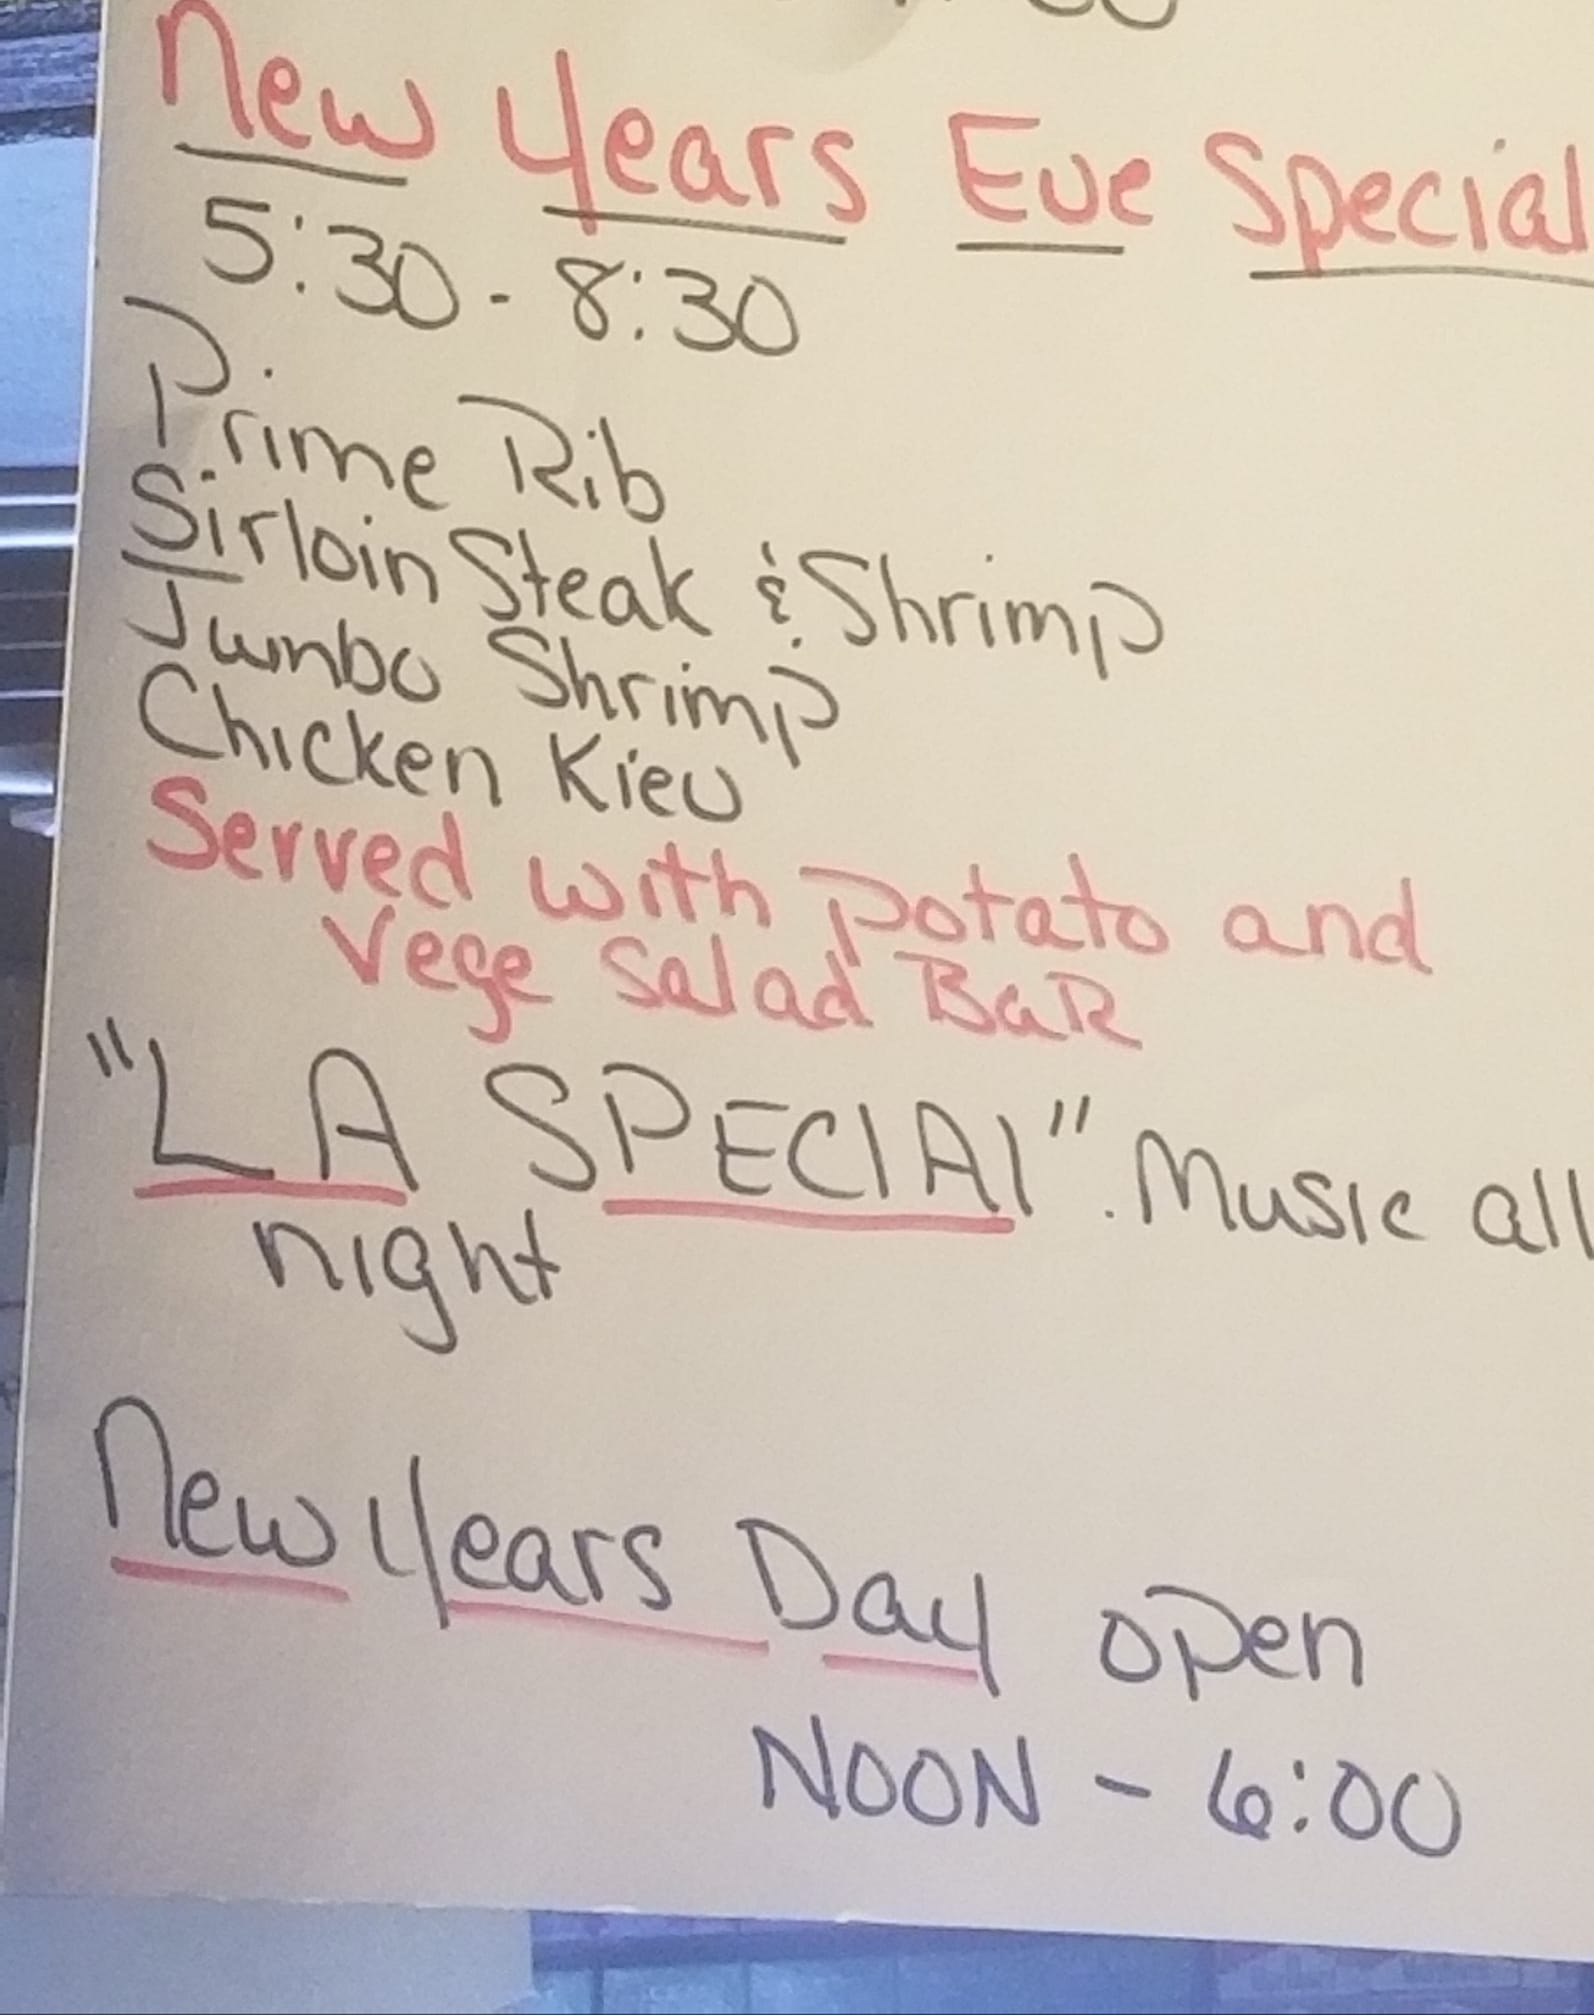 New Years Eve Special
5:30 - 8:30
Prime Rib
Sirloin Steak & Shrimp
Jumbo Shrimp
Chicken Kiev
Served with potato and
Vege Salad BaR
"LA SPECIAl". Music all
night
New Years Day open
NOON - 6:00